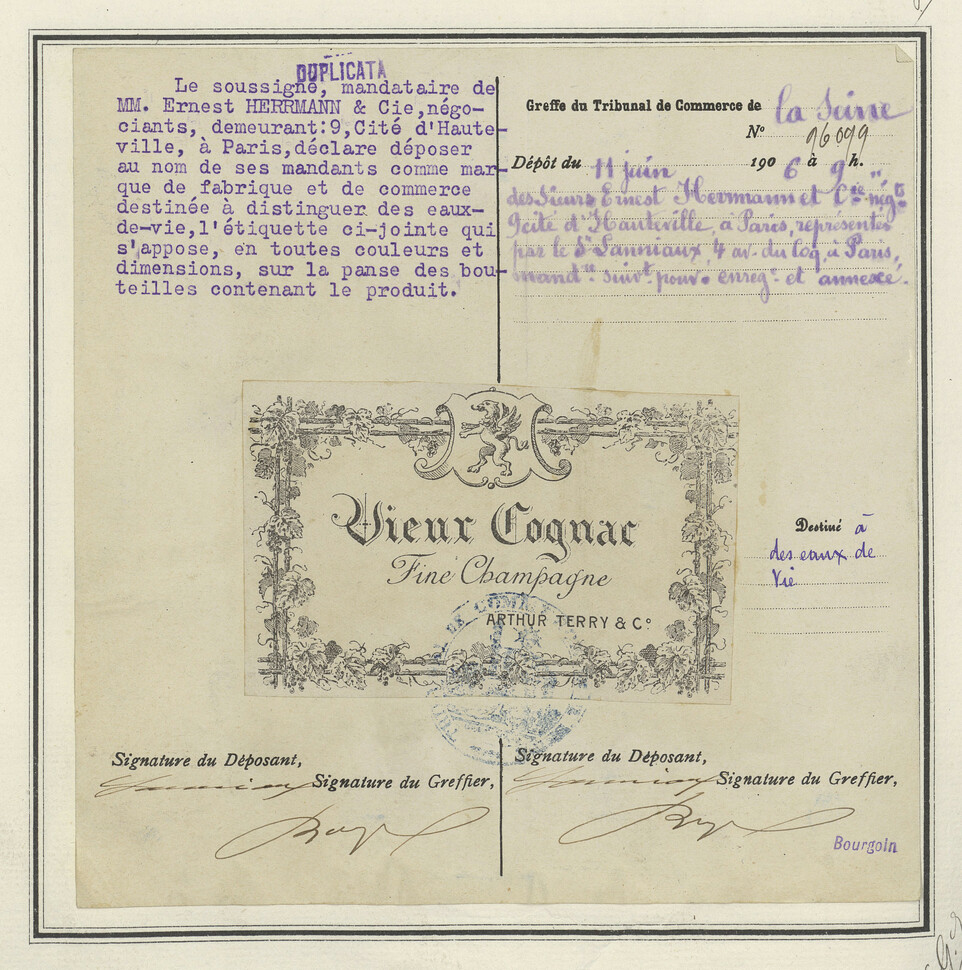 DUPLICATA
Le soussigné, mandataire de
MM. Ernest HERRMANN & Cie,négo-
ciants, demeurant:9,Cité d'Haute-
ville, à Paris,déclare déposer
au nom de ses mandants comme mar-
que de fabrique et de commerce
destinée à distinguer des eaux-
de-vie,l'étiquette ci-jointe qui
s'appose, en toutes couleurs et
dimensions, sur la panse des bou-
teilles contenant le produit.
Greffe du Tribunal de Commerce de la Seine
No 96099
Dépôt du 11 juin 1906 à 9 h. "
des Sieurs Ernest Herrmann et Cie négts
9 cité d'Hauteville, à Paris, représentés
par le Sr Lanniaux, 4 av. du Coq, à Paris,
mandre suivt pouvr enregé et annexé.
Vieux Cognac
Fine Champagne
ARTHUR TERRY & Co
Destiné à
des eaux de
vie
Signature du Déposant,
Signature du Greffier,
Signature du Déposant,
Signature du Greffier,
Bourgoin